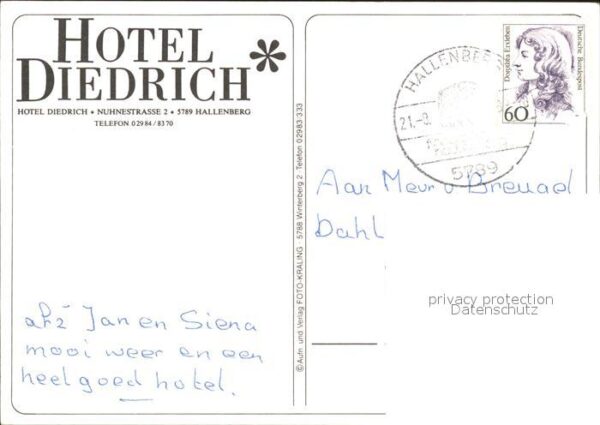 HOTEL
DIEDRICH*
HOTEL DIEDRICH • NUHNESTRASSE 2 • 5789 HALLENBERG
TELEFON 02984/8370
©Aufn. und Verlag FOTO-KRALING · 5788 Winterberg 2 Telefon 02983 333
HALLENBERG
21.-8.
5789
Dorothea Erxleben
Deutsche Bundespost
60
Aan Meur v Breugel
Dahl
privacy protection
Datenschutz
afz Jan en Siena
mooi weer en een
heel goed hotel.